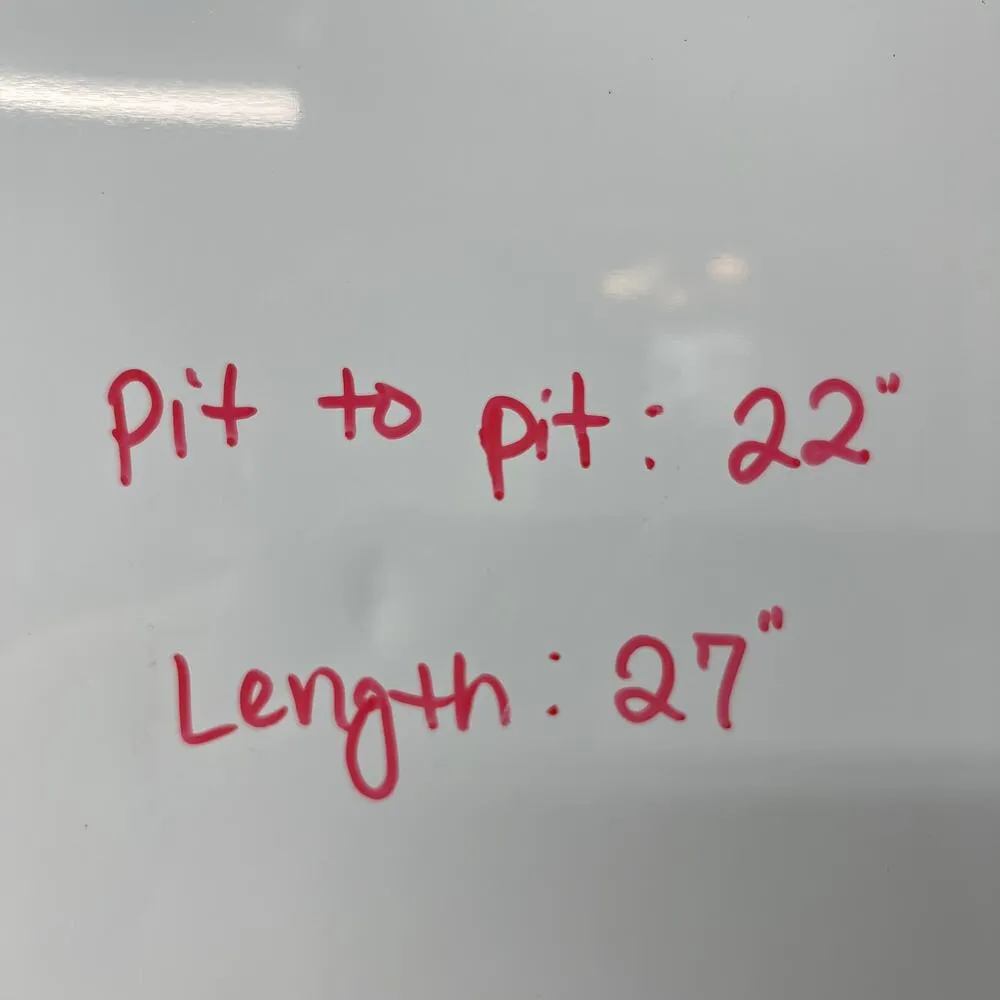 Pit to pit: 22"
Length: 27"